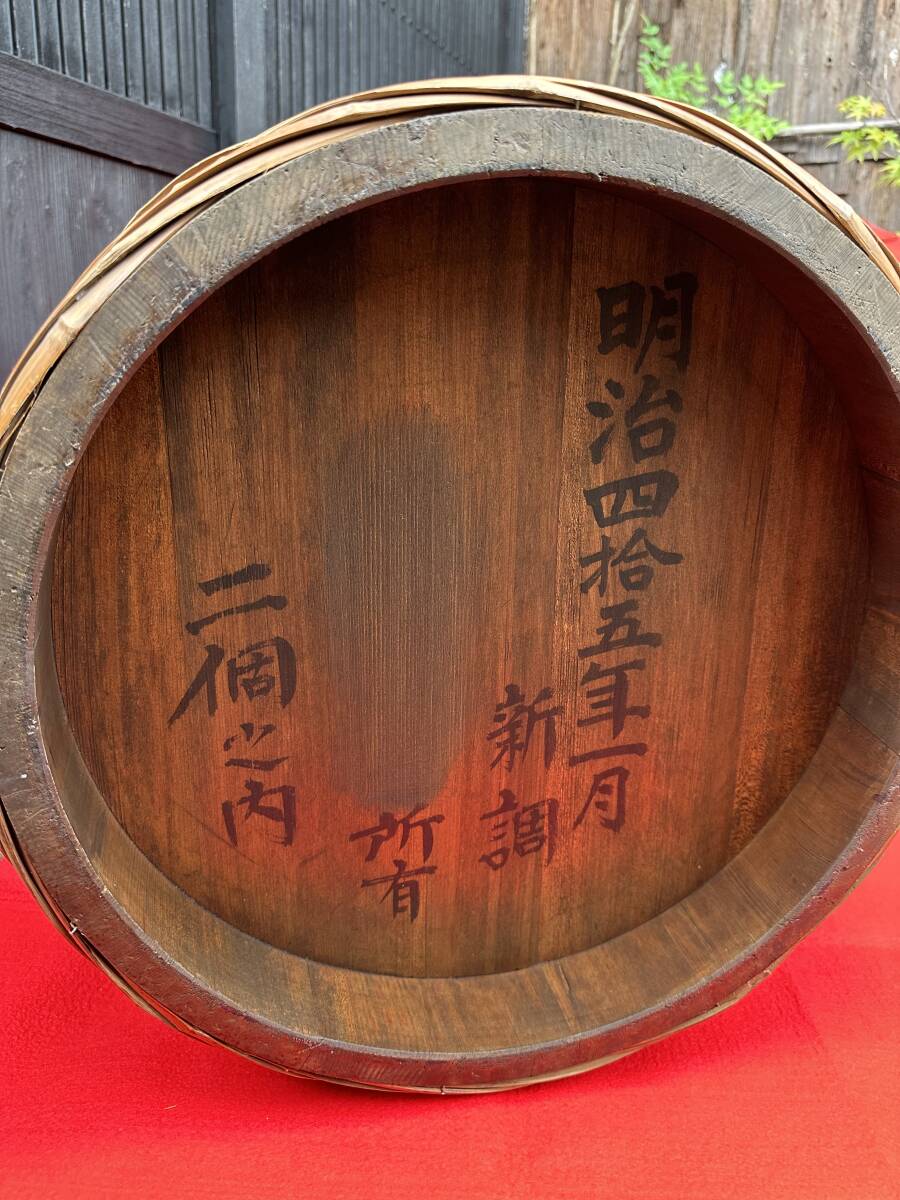 明治四拾五年一月
新調
所有
二個之内